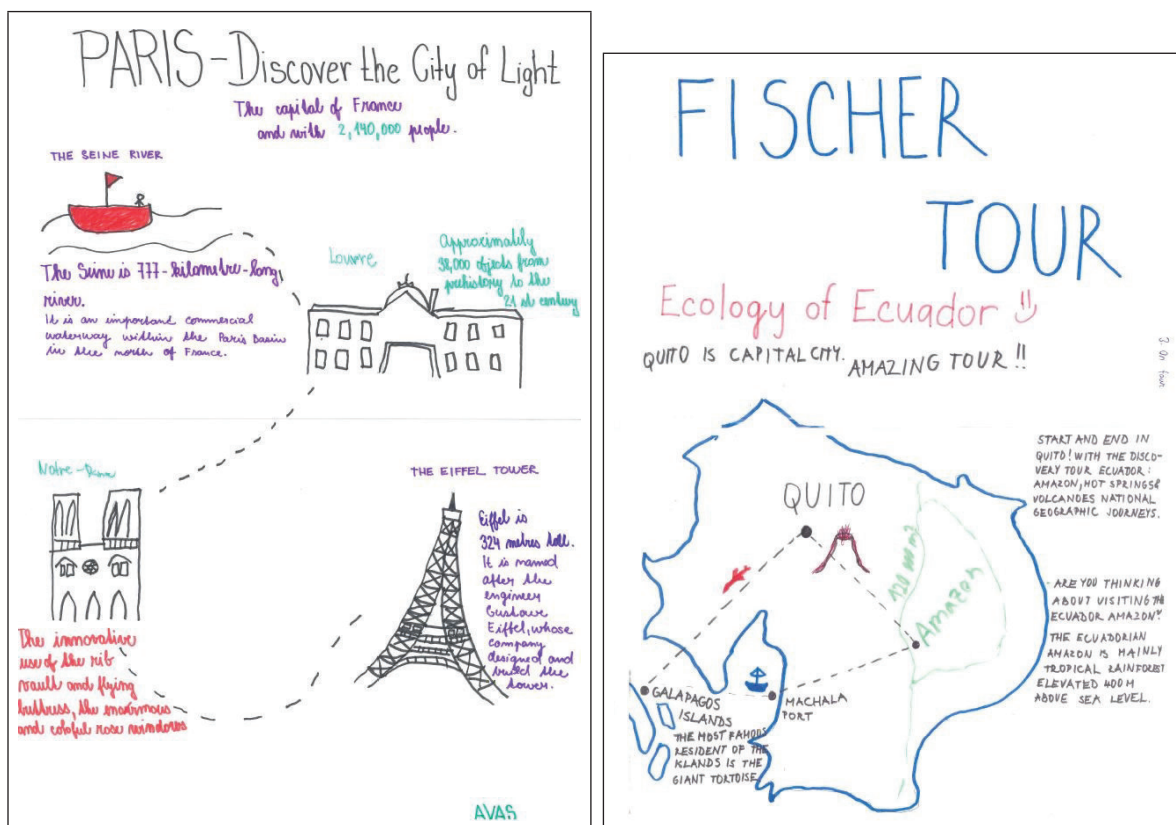 PARIS - Discover the City of Light
The capital of France
and with 2,140,000 people.
THE SEINE RIVER
The Seine is 777-kilometre-long
river.
It is an important commercial
waterway within the Paris Basin
in the north of France.
Louvre
Approximately
38,000 objects from
prehistory to the
21 st century
Notre-Dame
The innovative
use of the rib
vault and flying
buttress, the enormous
and coloful rose windows
THE EIFFEL TOWER
Eiffel is
324 metres tall.
It is named
after the
engineer
Gustave
Eiffel, whose
company
designed and
build the
tower.
AVAS
FISCHER
TOUR
Ecology of Ecuador
QUITO IS CAPITAL CITY. AMAZING TOUR!!
3. On tour
START AND END IN
QUITO! WITH THE DISCO-
VERY TOUR ECUADOR:
AMAZON, HOT SPRINGS &
VOLCANOES NATIONAL
GEOGRAPHIC JOURNEYS.
QUITO
Amazon
ARE YOU THINKING
ABOUT VISITING THE
ECUADOR AMAZON?
THE ECUADORIAN
AMAZON IS MAINLY
TROPICAL RAINFOREST
ELEVATED 400M
ABOVE SEA LEVEL.
GALAPAGOS
ISLANDS
THE MOST FAMOUS
RESIDENT OF THE
ISLANDS IS THE
GIANT TORTOISE
MACHALA
PORT